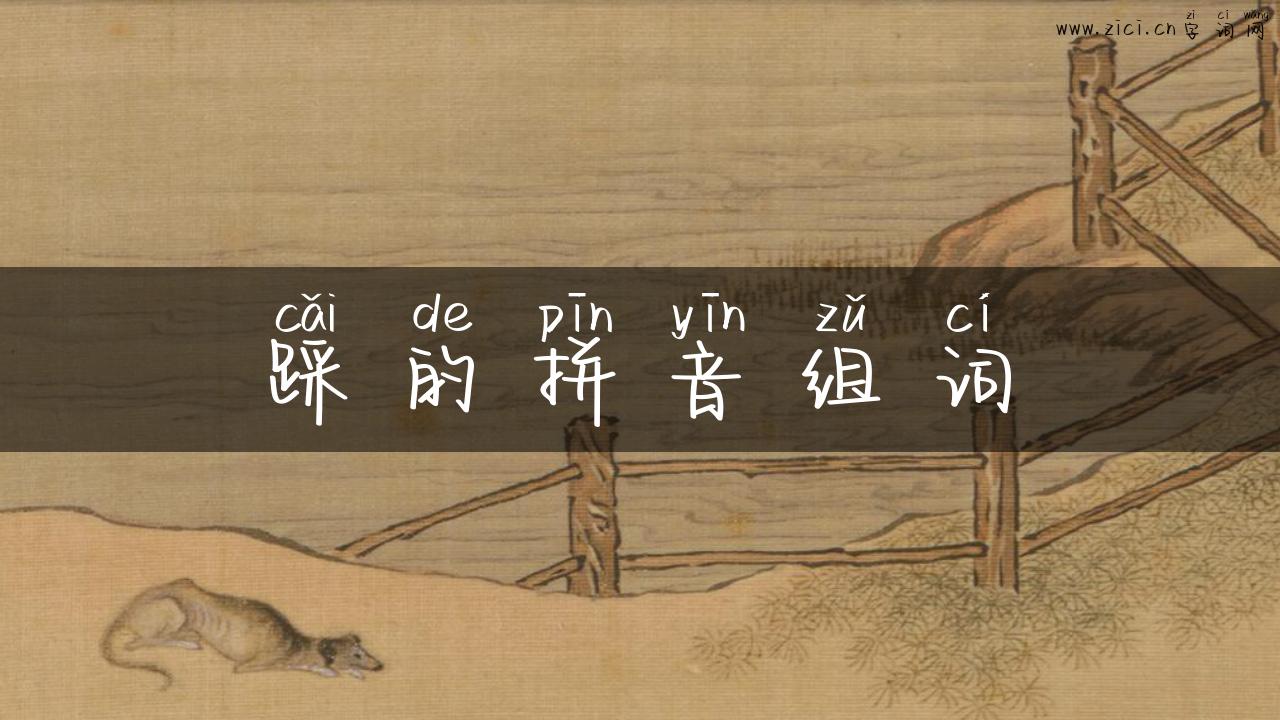 zì cí wǎng
www.zici.cn 字词网
cǎi de pīn yīn zǔ cí
踩的拼音组词